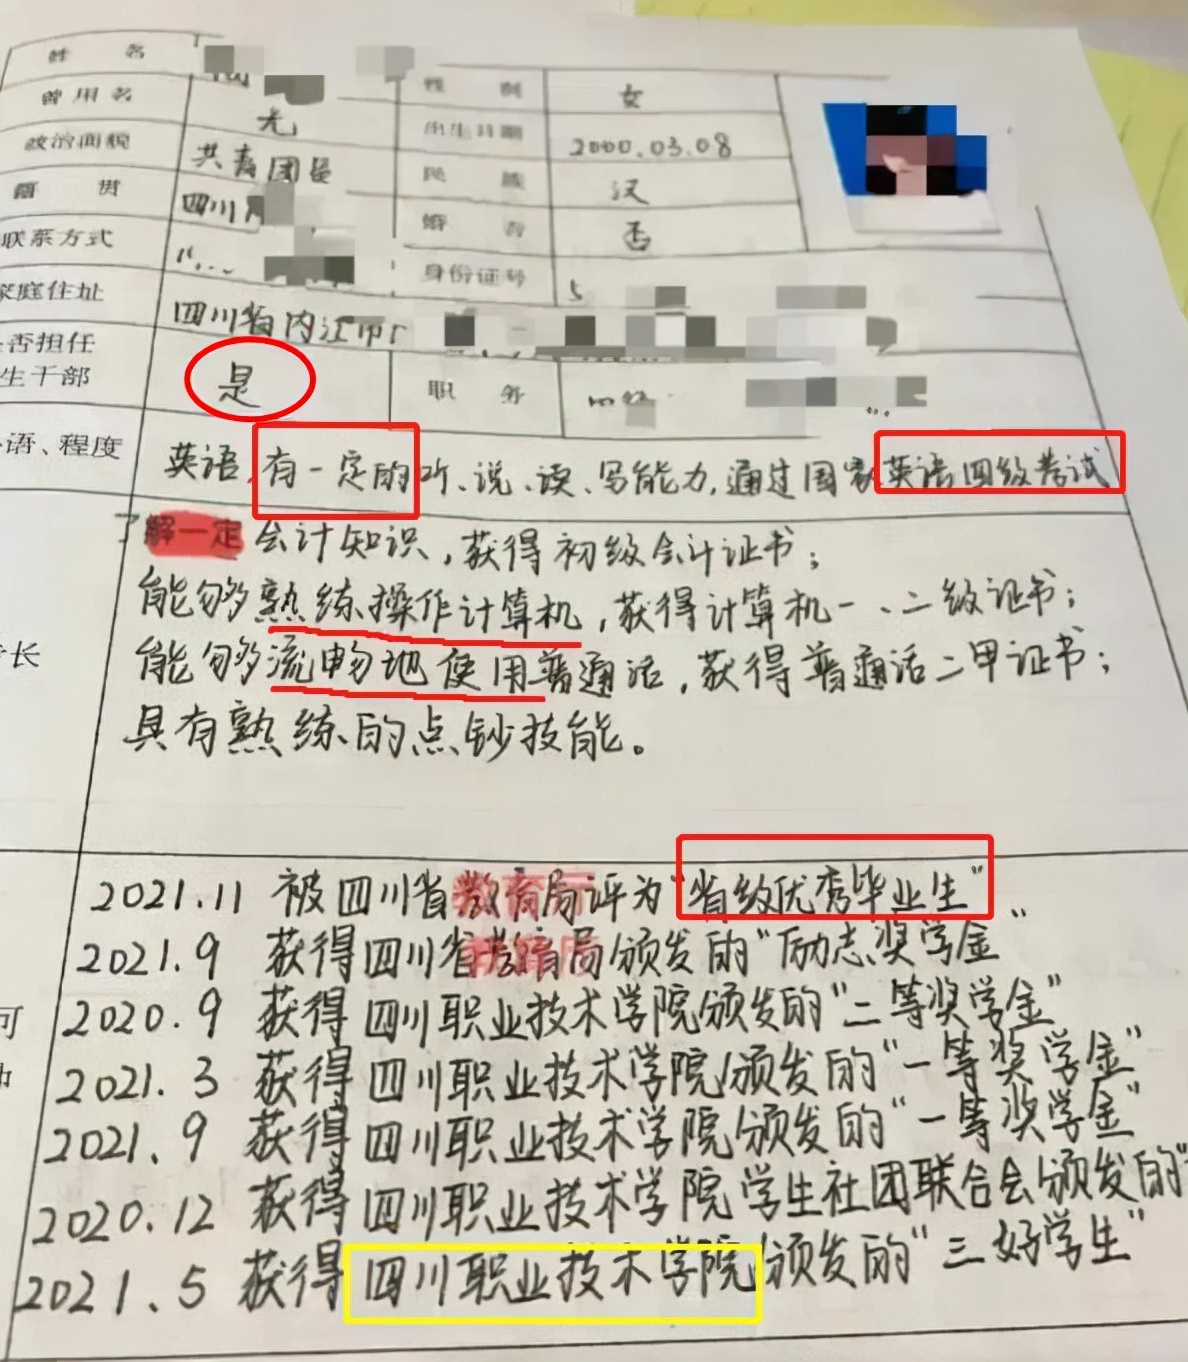 姓 名
性 别 女
曾用名 无
出生日期 2000.03.08
政治面貌 共青团员
民 族 汉
籍 贯 四川
婚 否 否
联系方式
身份证号 5
家庭住址 四川省内江市
否担任
生干部 是 职 务
语、程度 英语,有一定的听、说、读、写能力,通过国家英语四级考试
了解一定会计知识,获得初级会计证书;
能够熟练操作计算机,获得计算机一、二级证书;
长 能够流畅地使用普通话,获得普通话二甲证书;
具有熟练的点钞技能。
2021.11 被四川省教育局评为"省级优秀毕业生"
2021.9 获得四川省教育局颁发的"励志奖学金"
2020.9 获得四川职业技术学院颁发的"二等奖学金"
2021.3 获得四川职业技术学院颁发的"一等奖学金"
2021.9 获得四川职业技术学院颁发的"一等奖学金"
2020.12 获得四川职业技术学院学生社团联合会颁发的"
2021.5 获得四川职业技术学院颁发的"三好学生"